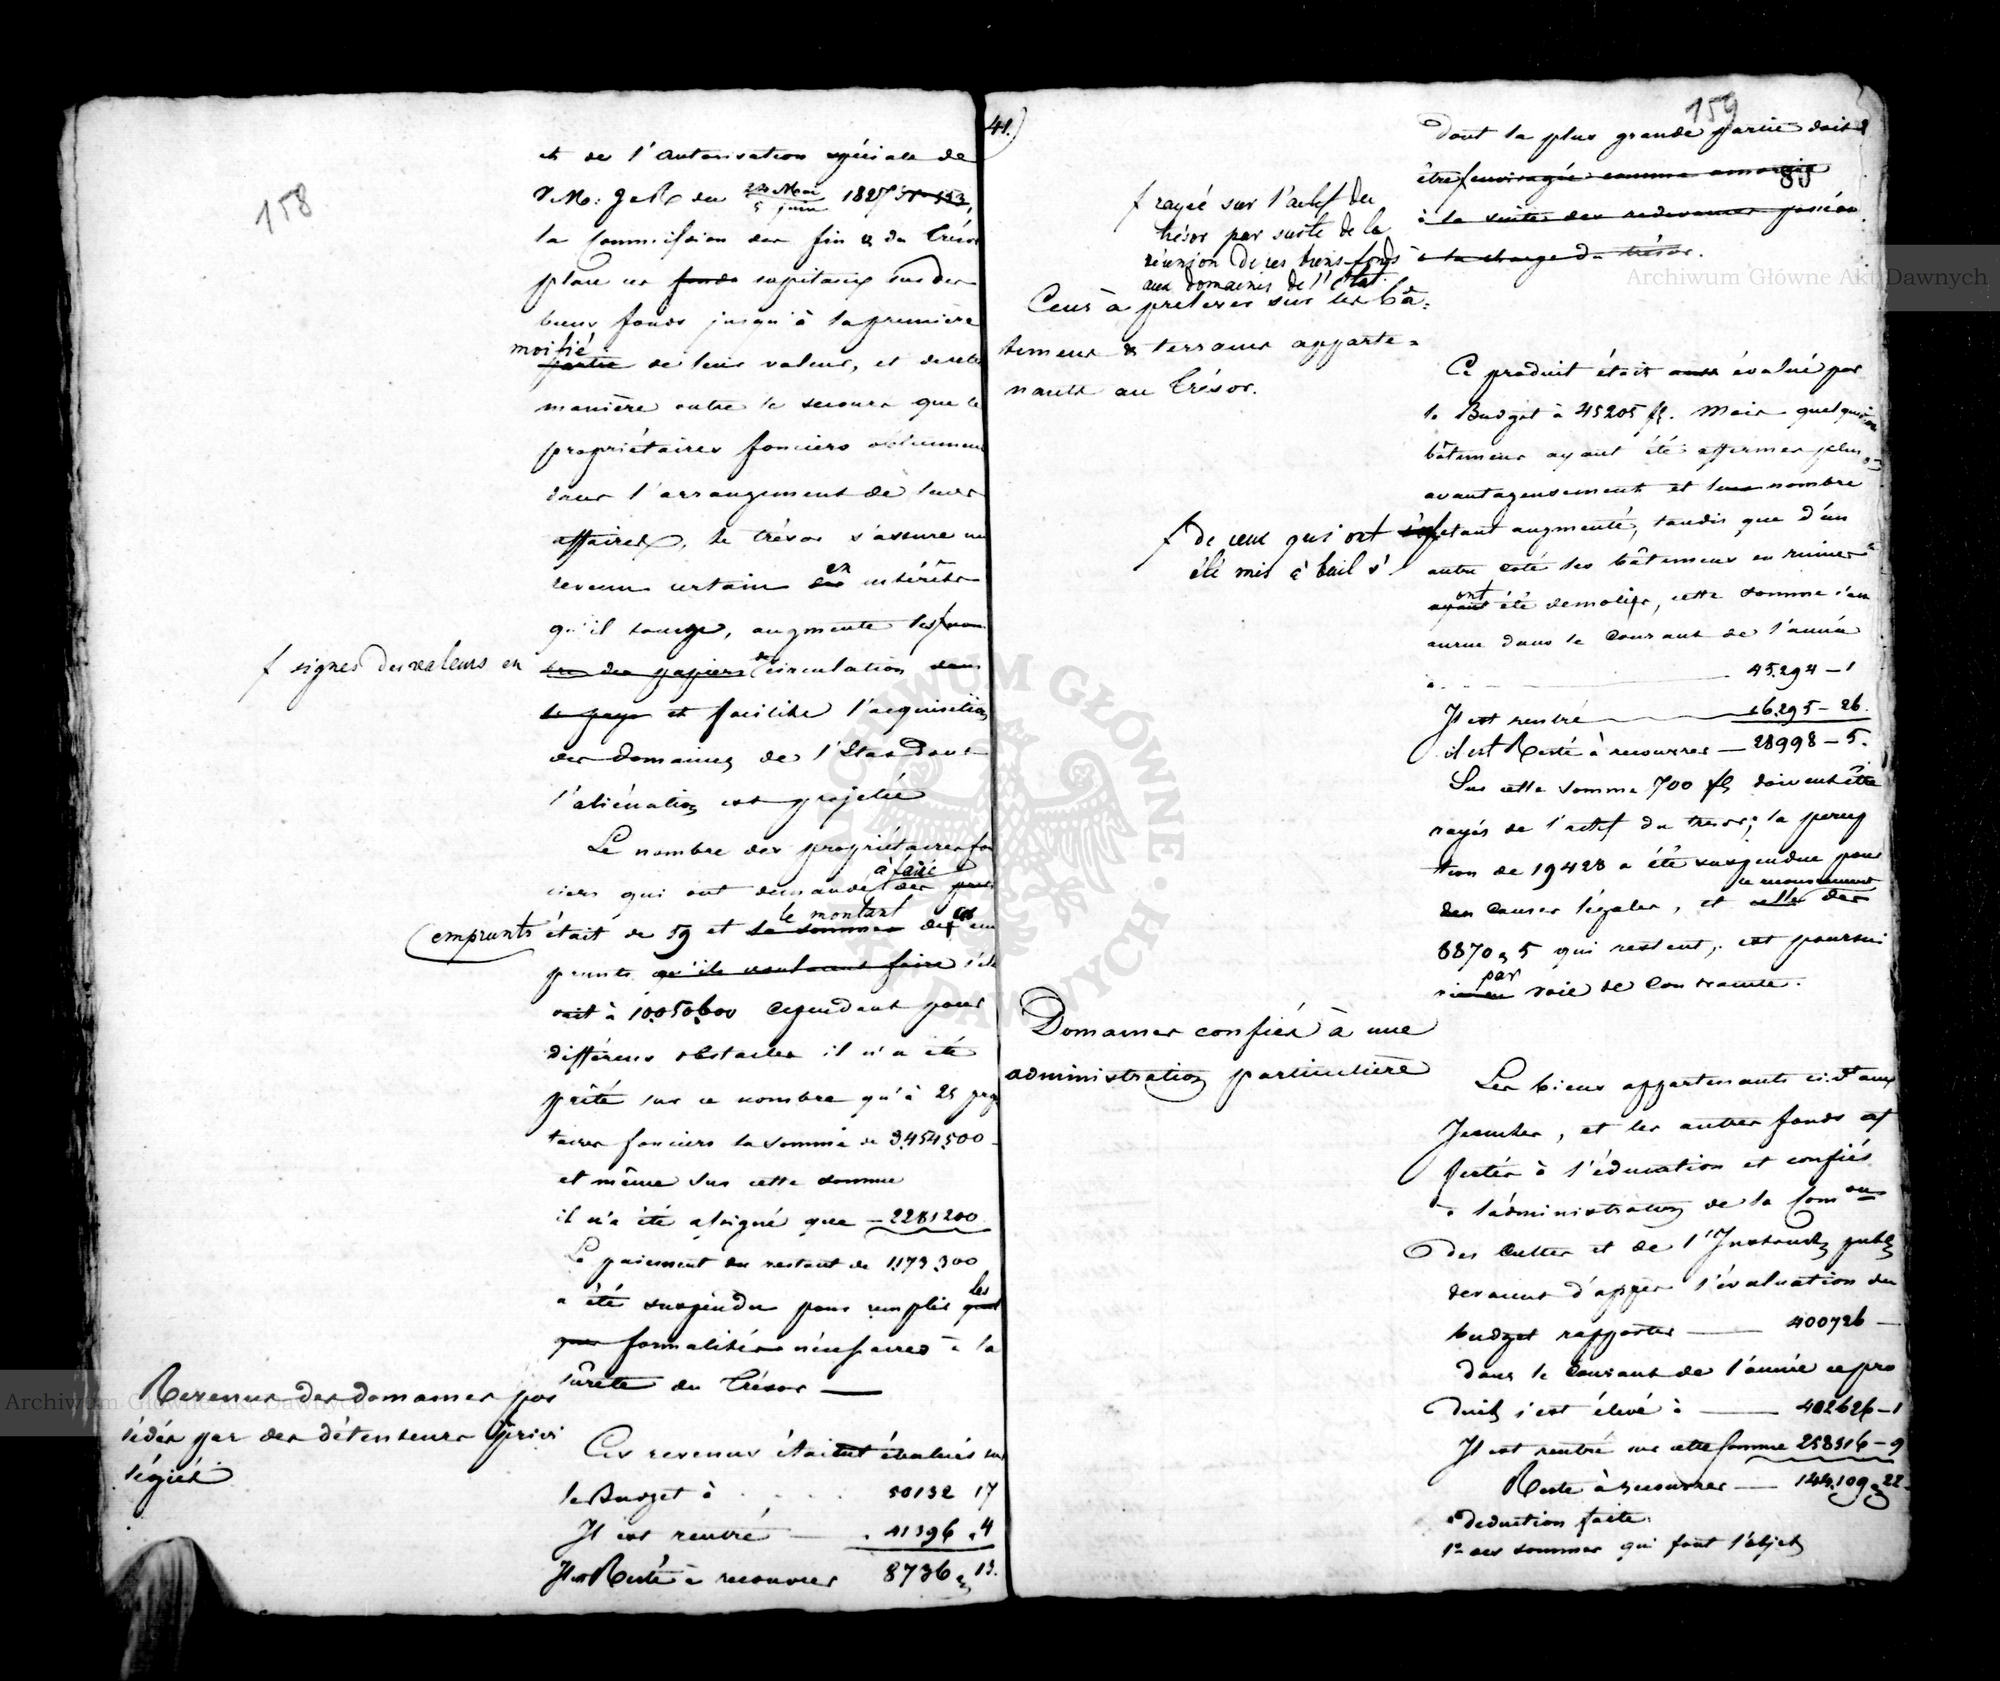 158
et de l'autorisation spéciale de
S. M. J. & R. du 24 Mai / 5 juin 1827 N 133,
la Commission des fin & du Trésor
place ces fonds capitaux sur des
biens fonds jusqu'à la première
moitié
partie de leur valeur, et de cette
manière outre le secours que les
propriétaires fonciers obtiennent
dans l'arrangement de leurs
affaires, le trésor s'assure un
revenu certain des en intérêts
qu'il touche, augmente les
f signes des valeurs en
des papiers circulation dans
le pays et facilite l'acquisition
des domaines de l'Etat dont
l'aliénation est projetée
Le nombre des propriétaires fon
à faire
ciers qui ont demandé des
le montant
emprunts était de 59 et la somme des ces em
prunts qu'ils voulaient faire s'éle
vait à 10,050,600 cependant pour
différens obstacles il n'a été
prêté sur ce nombre qu'à 25 prop
taires fonciers la somme de 3,454,500 -
et même sur cette somme
il n'a été assigné que - 2281200
Le paiement du restant de 1,173,300
a été suspendu pour remplir les quel
ques formalités nécessaires à la
sûreté du Trésor —
Revenus des domaines pos
sédés par des détenteurs privi
légiés
Ces revenus étaient évalués sur
le Budget à . . . . 50132 17
Il est rentré — . 41396 . 4
Il est Resté à recouvrer 8736 " 13.
41.)
159
85
dont la plus grande partie doit
être f envisagée comme amortie
à la suite des redevances
à la charge du trésor.
f rayée sur l'actif du
trésor par suite de la
réunion de ces biens-fonds
aux domaines de l'Etat
Cens à prélever sur les bâ=
timens & terrains apparte=
nants au Trésor.
Ce produit était évalué par
le Budget à 45205 fl. Mais quelques
bâtimens ayant été affermés plus
avantageusement et leur nombre
f de ceux qui ont
été mis à bail s'
étant augmenté, tandis que d'un
autre coté les bâtimens en ruines
ont
ayant été demolis, cette somme s'est
accrue dans le Courant de l'année
à . — 45.294 - 1
Il est rentré — 16.295 - 26.
il est Resté à recouvrer — 28998 - 5.
Sur cette somme 700 fl doivent être
rayés de l'actif du tresor; la percep
tion de 19428 a été suspendue pour
le recouvrement
des causes légales, et celle des
8870 " 5 qui restent, est poursui
par
vie en voie de Contrainte.
Domaines confiés à une
administration particulière
Les biens appartenants ci-dt aux
Jesuites, et les autres fonds af
fectés à l'éducation et confiés
à l'administration de la Comon
des Cultes et de l'Instruct publ
devaient d'après l'évaluation du
budget rapporter — 400726 —
dans le Courant de l'année ce pro
duit s'est élevé à — 402626 - 1
Il est rentré sur cette somme 258516 - 9
Reste à recouvrer — 144,109 " 22.
deduction faite.
1° des sommes qui font l'objet
Archiwum Główne Akt Dawnych
Archiwum Główne Akt Dawnych
ARCHIWUM GŁÓWNE AKT DAWNYCH